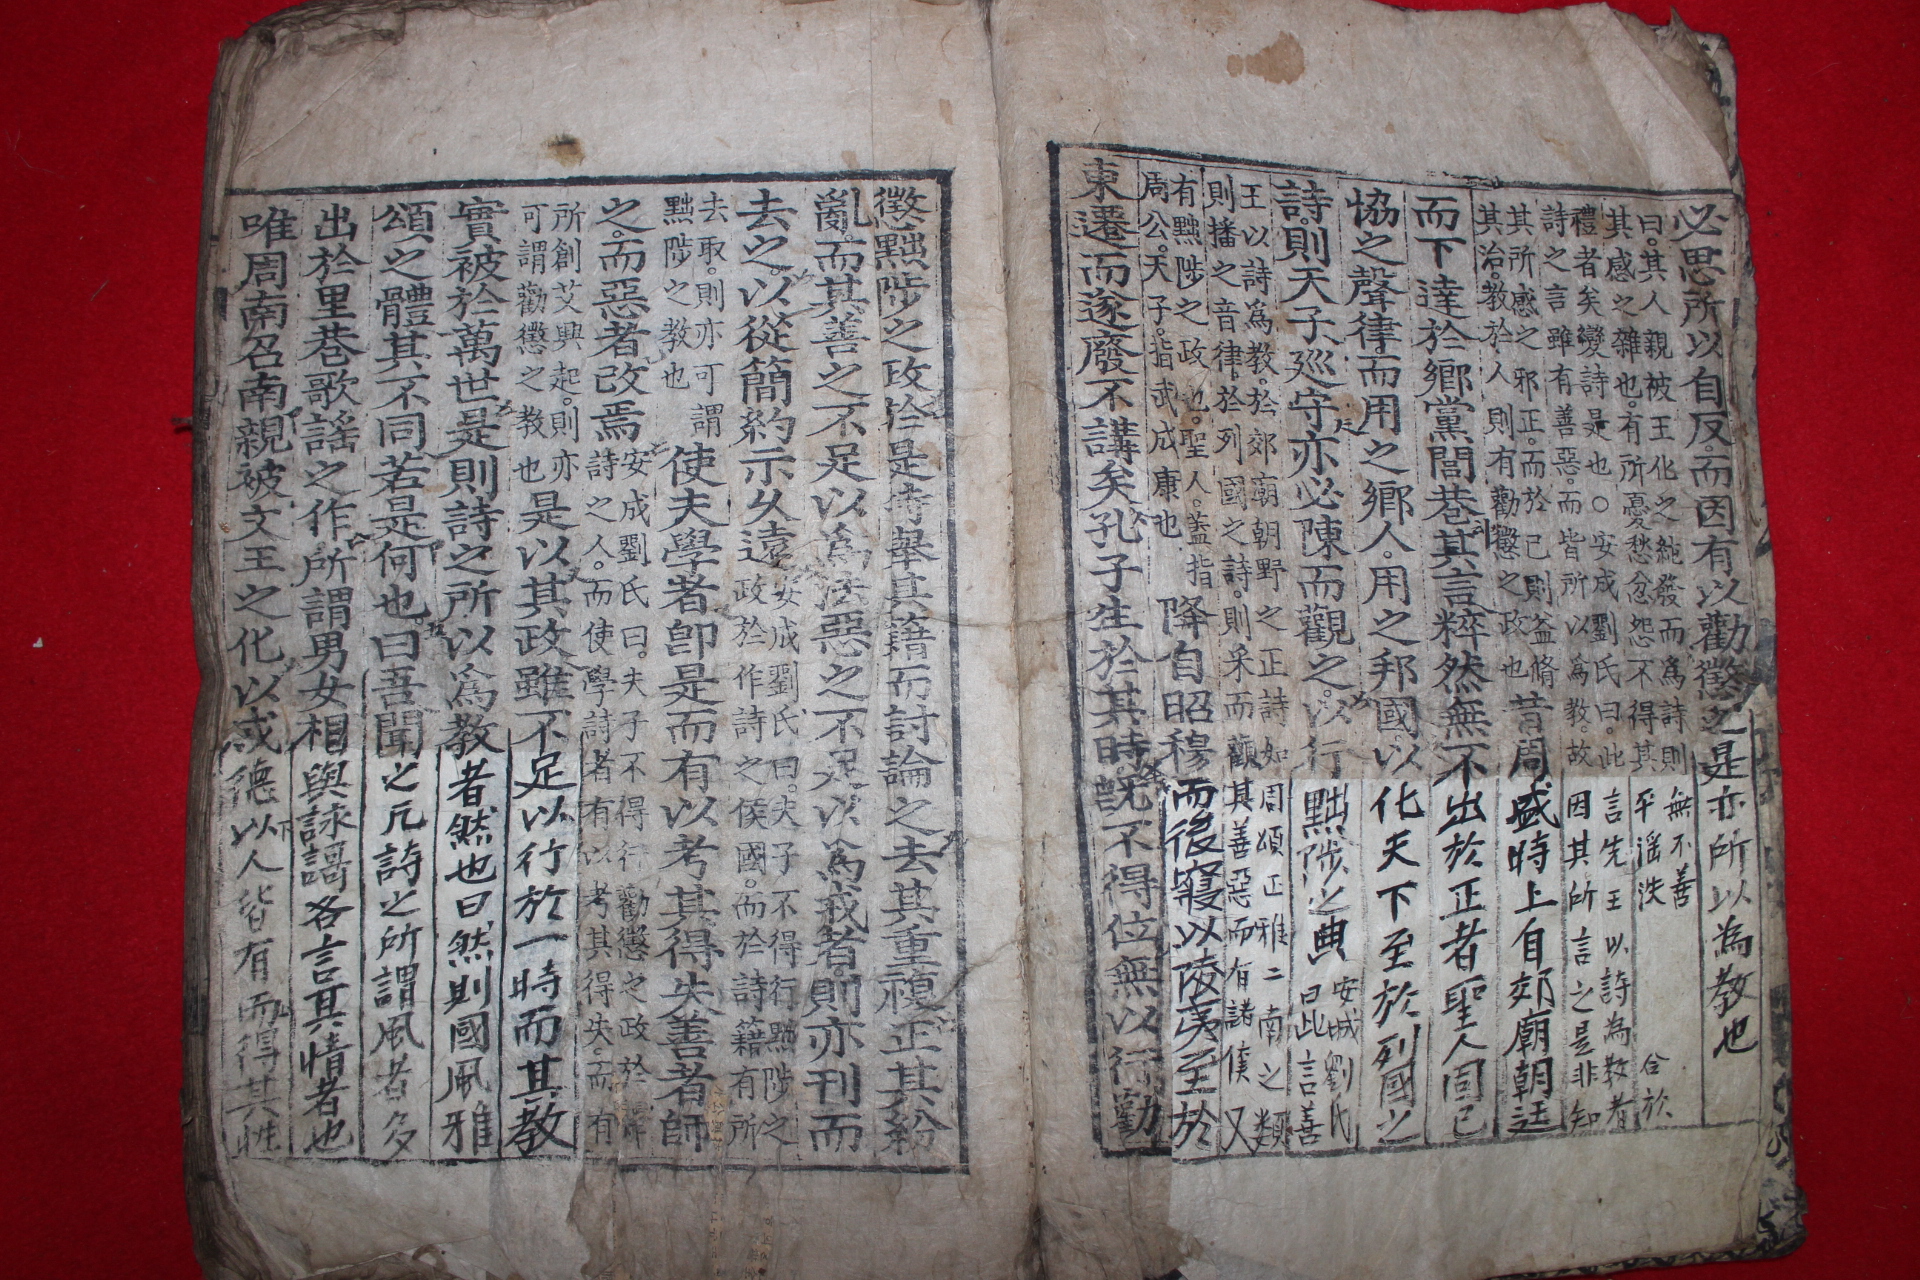 必思所以自反而因有以勸懲之是亦所以為教也
曰其人親被王化之純發而為詩則無不善
其感之雜也有所憂愁忿怨不得其平淫泆合於
禮者矣變詩是也○安成劉氏曰此言先王以詩為教者
詩之言雖有善惡而皆所以為教故因其所言之是非知
其所感之邪正而於已則益脩
其治教於人則有勸懲之政也
昔周盛時上自郊廟朝廷
而下達於鄉黨閭巷其言粹然無不出於正者聖人固已
協之聲律而用之鄉人用之邦國以化天下至於列國之
詩則天子巡守亦必陳而觀之以行黜陟之典
安城劉氏
曰此言善
王以詩為教於郊廟朝野之正詩如周頌正雅二南之類
則播之音律於列國之詩則采而觀其善惡而有諸侯又
有黜陟之政也聖人蓋指
周公天子指武成康也
降自昭穆而後寖以陵夷至於
東遷而遂廢不講矣孔子生於其時既不得位無以行勸
懲黜陟之政於是特舉其籍而討論之去其重複正其紛
亂而其善之不足以為法惡之不足以為戒者則亦刊而
去之以從簡約示久遠
安成劉氏曰夫子不得行黜陟之
政於作詩之侯國而於詩籍有所
去取則亦可謂
黜陟之教也
使夫學者即是而有以考其得失善者師
之而惡者改焉
安成劉氏曰夫子不得行勸懲之政於
詩之人而使學詩者有以考其得失而有
所創艾興起則亦
可謂勸懲之教也
是以其政雖不足以行於一時而其教
實被於萬世是則詩之所以為教者然也曰然則國風雅
頌之體其不同若是何也曰吾聞之凡詩之所謂風者多
出於里巷歌謠之作所謂男女相與詠謌各言其情者也
唯周南召南親被文王之化以成德以人皆有而得其性